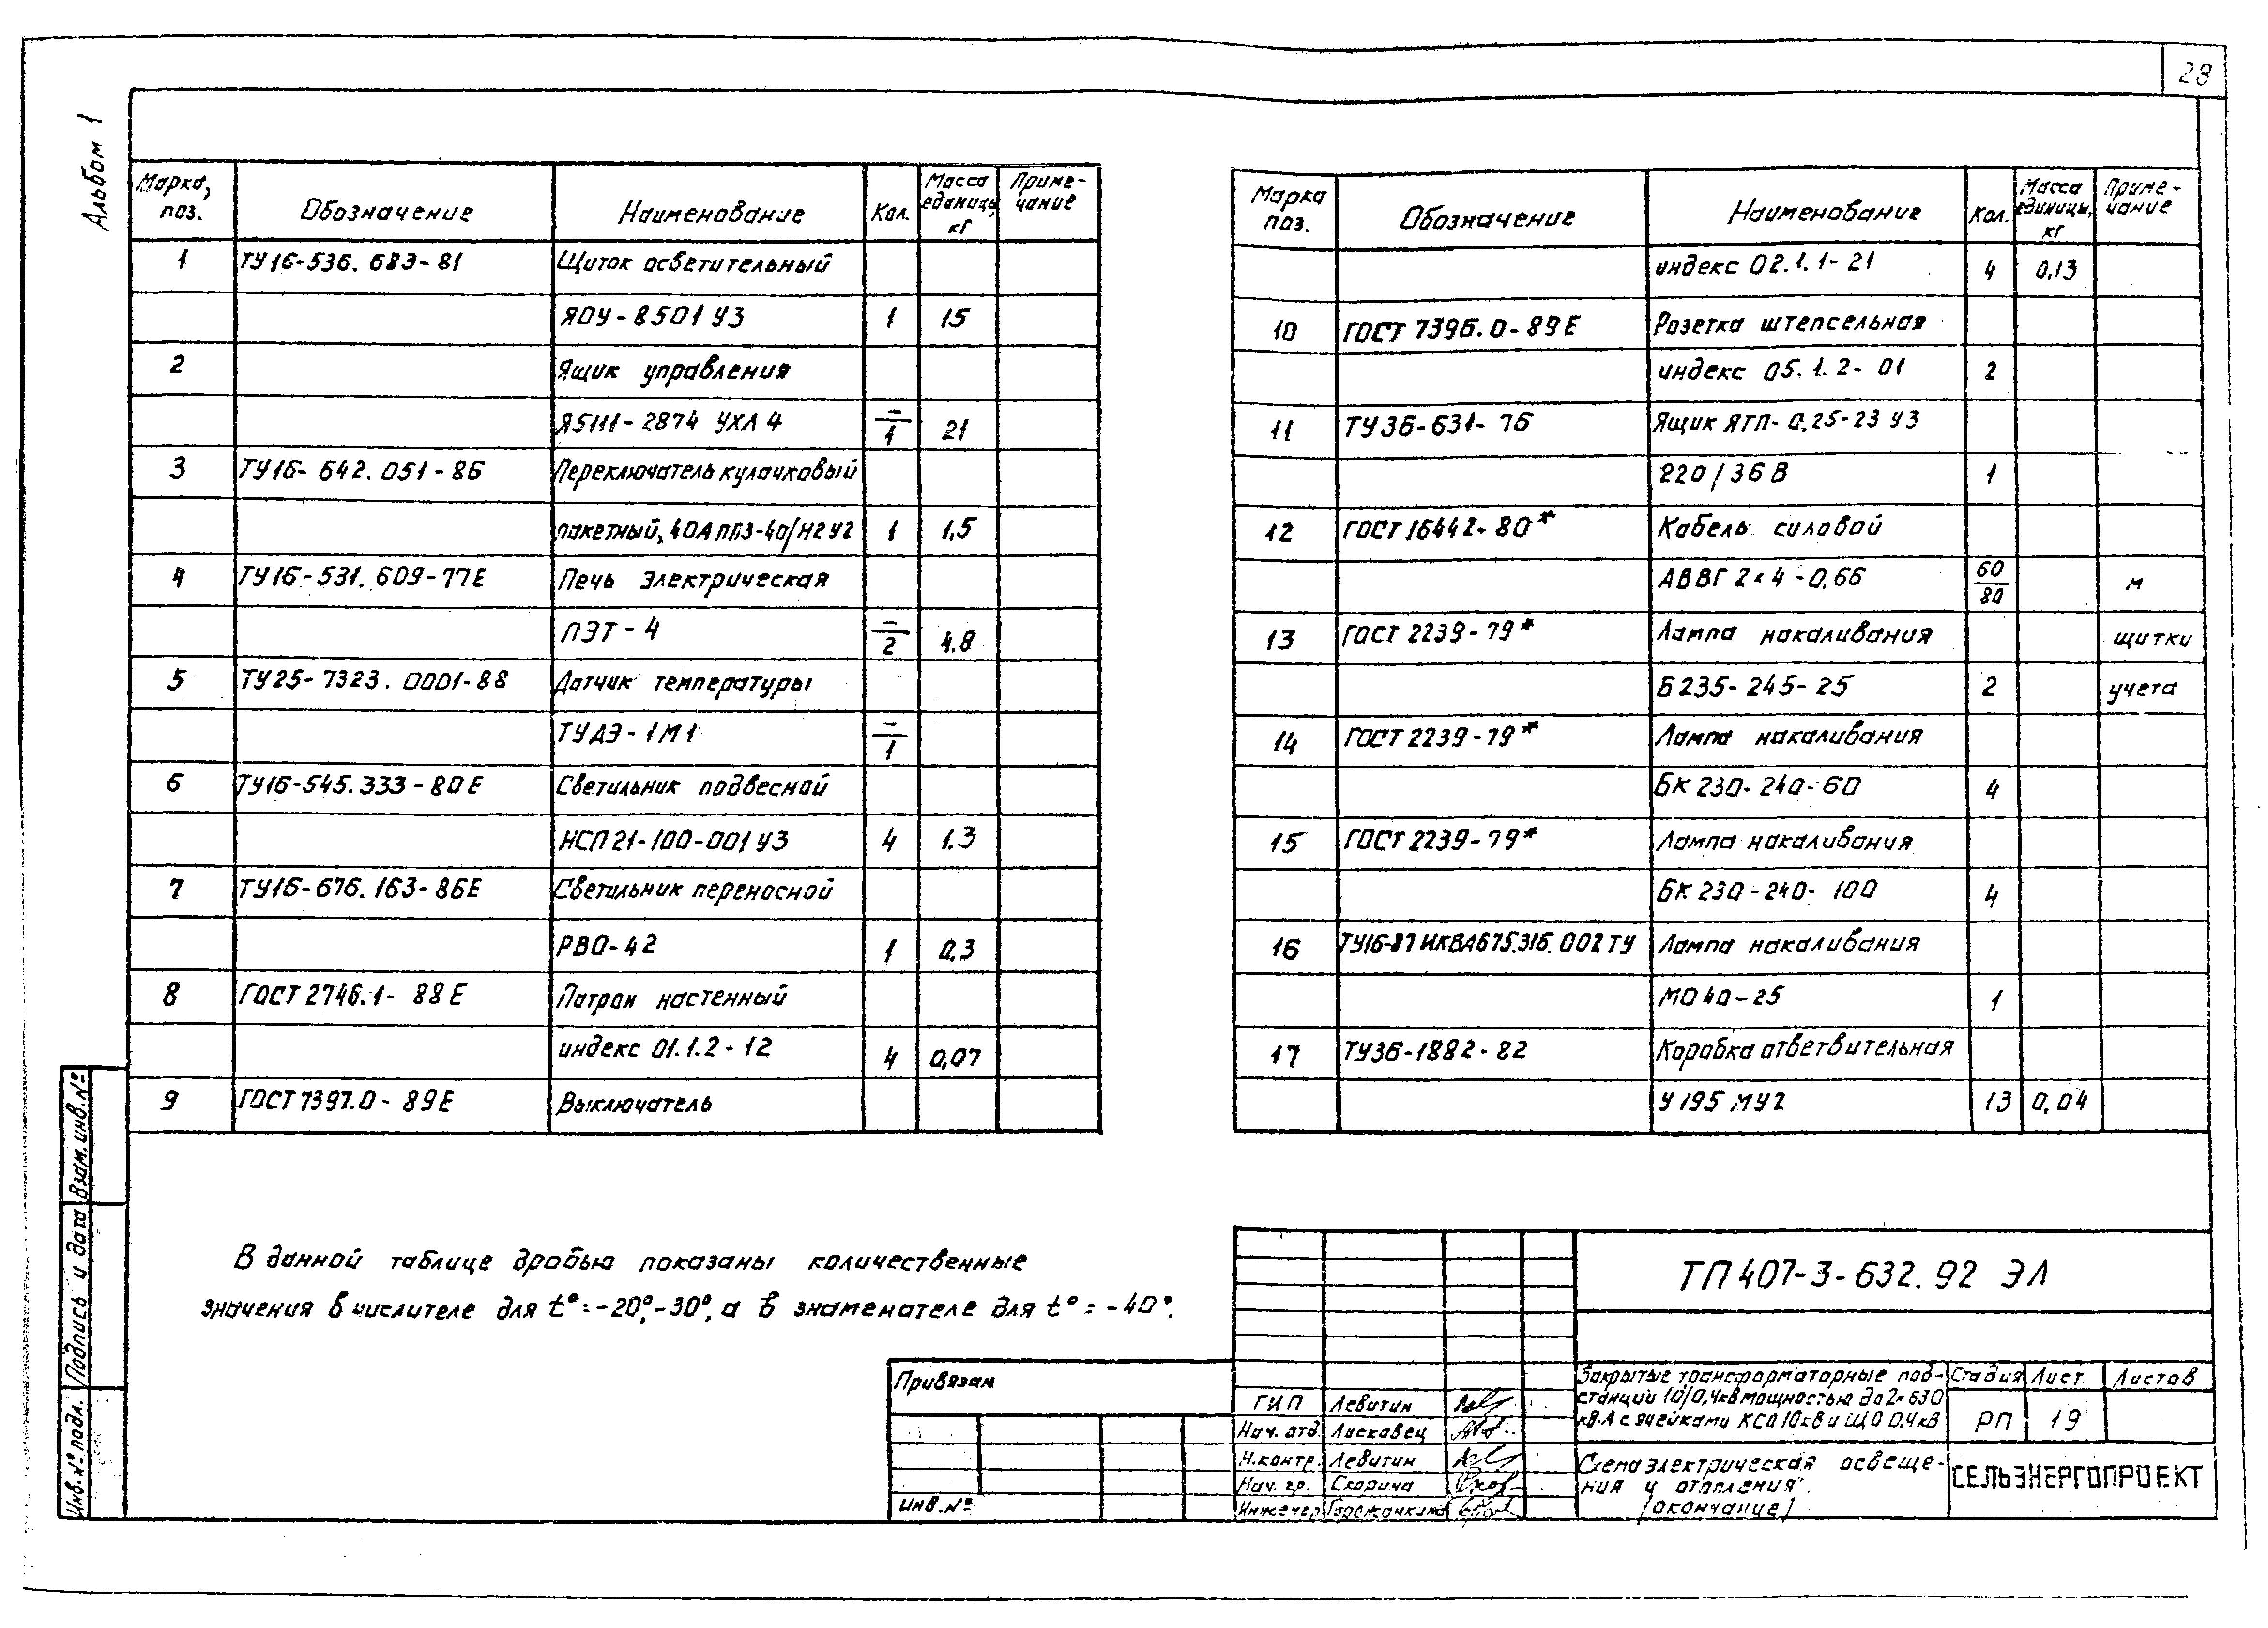 28
Альбом 1
Марка, поз. Обозначение Наименование Кол. Масса единицы, кг Приме-чание
1 ТУ16-536.683-81 Щиток осветительный
ЯОУ-8501 У3 1 15
2 Ящик управления
Я5111-2874 УХЛ4 -/1 21
3 ТУ16-642.051-86 Переключатель кулачковый
пакетный, 40А ПП3-40/Н2 У2 1 1,5
4 ТУ16-531.609-77Е Печь электрическая
ПЭТ-4 -/2 4.8
5 ТУ25-7323.0001-88 Датчик температуры
ТУДЭ-1М1 -/1
6 ТУ16-545.333-80Е Светильник подвесной
НСП21-100-001 У3 4 1.3
7 ТУ16-676.163-86Е Светильник переносной
РВО-42 1 0,3
8 ГОСТ 2746.1-88Е Патрон настенный
индекс 01.1.2-12 4 0,07
9 ГОСТ 7397.0-89Е Выключатель
Марка поз. Обозначение Наименование Кол. Масса единицы, кг Приме-чание
индекс 02.1.1-21 4 0,13
10 ГОСТ 7396.0-89Е Розетка штепсельная
индекс 05.1.2-01 2
11 ТУ36-631-76 Ящик ЯТП-0,25-23 У3
220/36В 1
12 ГОСТ 16442-80* Кабель силовой
АВВГ 2×4-0,66 60/80 м
13 ГОСТ 2239-79* Лампа накаливания щитки
Б235-245-25 2 учета
14 ГОСТ 2239-79* Лампа накаливания
БК 230-240-60 4
15 ГОСТ 2239-79* Лампа накаливания
БК 230-240-100 4
16 ТУ16-87 ИКВА675.316.002ТУ Лампа накаливания
МО40-25 1
17 ТУ36-1882-82 Коробка ответвительная
У195 МУ2 13 0,04
В данной таблице дробью показаны количественные
значения в числителе для t°=-20°,-30°, а в знаменателе для t°=-40°.
Взам. инв. №
Подпись и дата
Инв. № подл.
Привязан
Инв. №
ТП 407-3-632.92 ЭЛ
ГИП Левитин
Нач. отд. Лисковец
Н.контр. Левитин
Нач. гр. Скорина
Инженер
Закрытые трансформаторные под-
станции 10/0,4кВ мощностью до 2×630
кВ.А с ячейками КСО 10кВ и ЩО 0,4кВ
Стадия Лист Листов
РП 19
Схема электрическая освеще-
ния и отопления
(окончание)
СЕЛЬЭНЕРГОПРОЕКТ